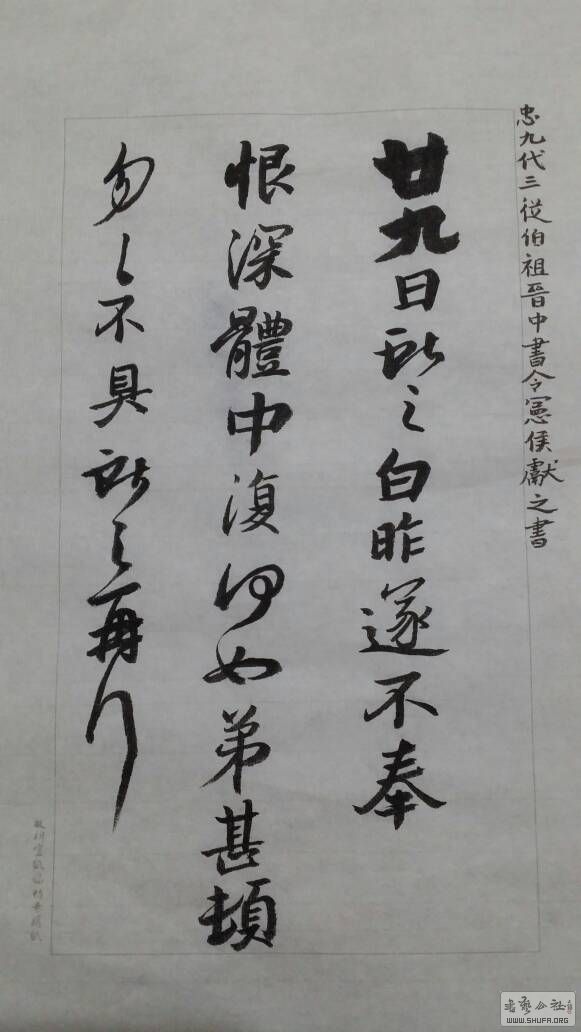 忠九代三從伯祖晉中書令憲侯獻之書
廿九日獻之白昨遂不奉
恨深體中復何如弟甚頓
匆々不具獻之再拜
書藝公社
WWW.SHUFA.ORG